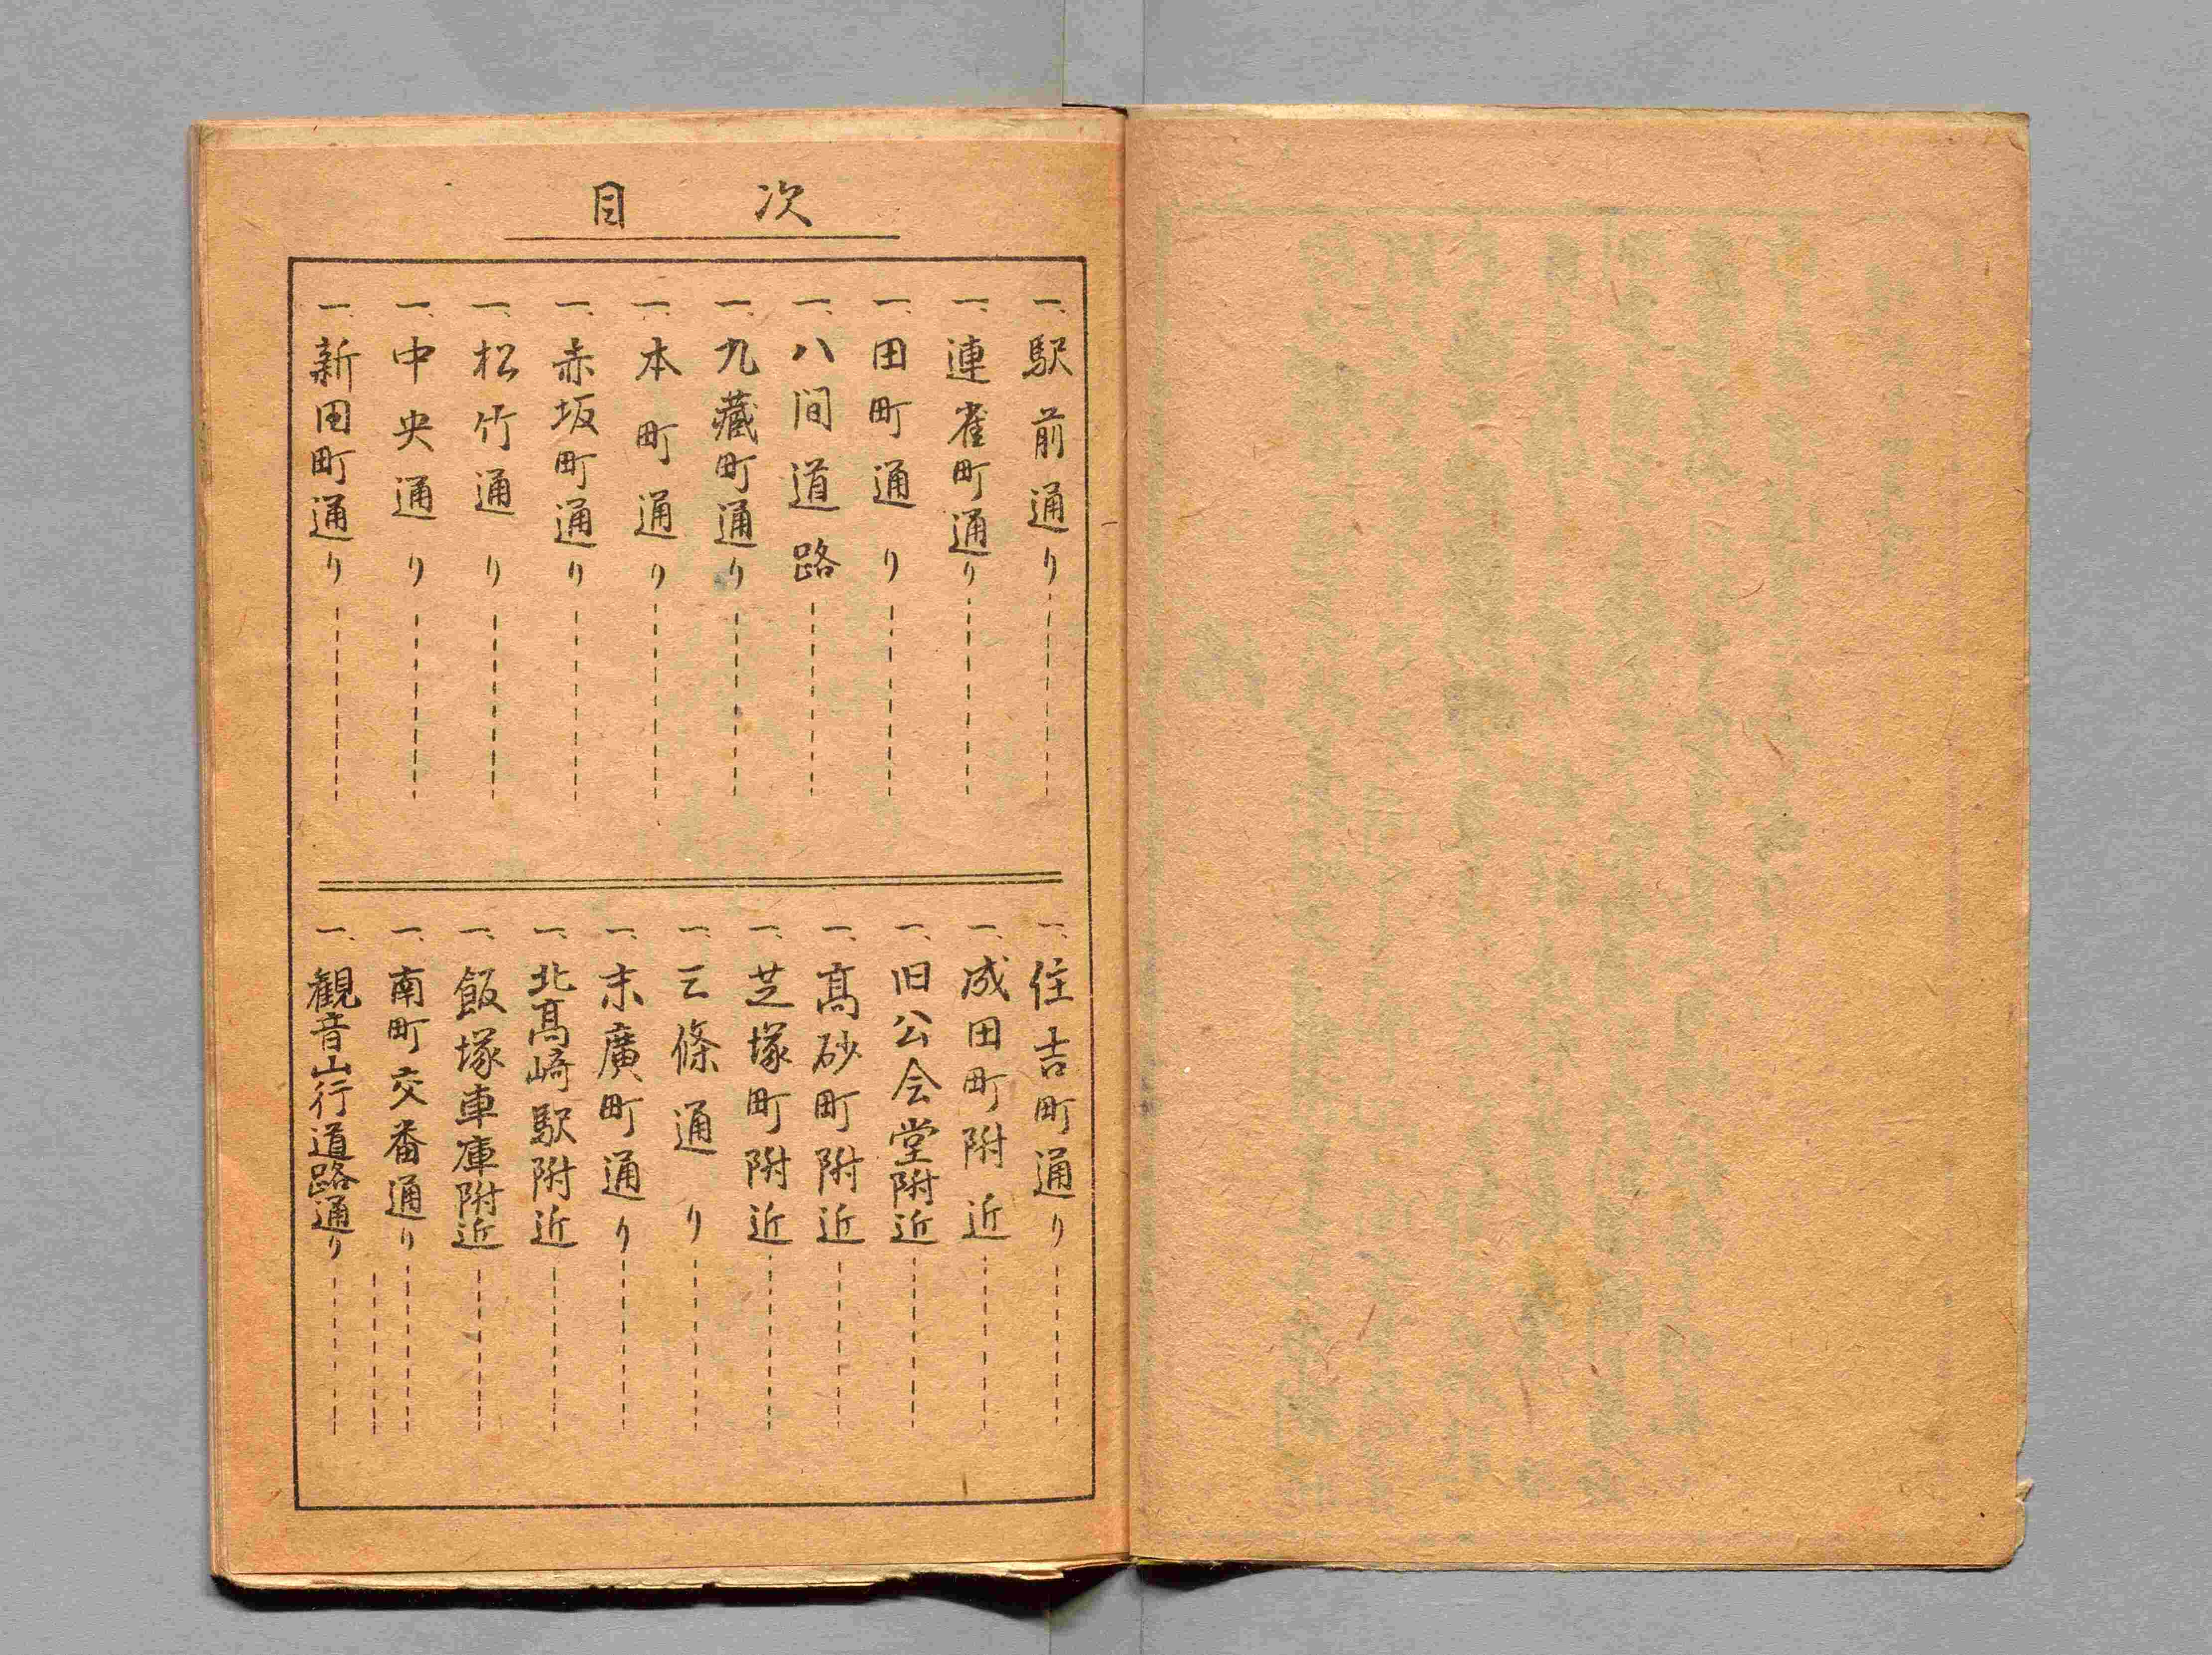 目次
一、駅前通り
一、連雀町通り
一、田町通り
一、八間道路
一、九藏町通り
一、本町通り
一、赤坂町通り
一、松竹通り
一、中央通り
一、新田町通り
一、住吉町通り
一、成田町附近
一、旧公会堂附近
一、高砂町附近
一、芝塚町附近
一、三條通り
一、末廣町通り
一、北高崎駅附近
一、飯塚車庫附近
一、南町交番通り
一、観音山行道路通り